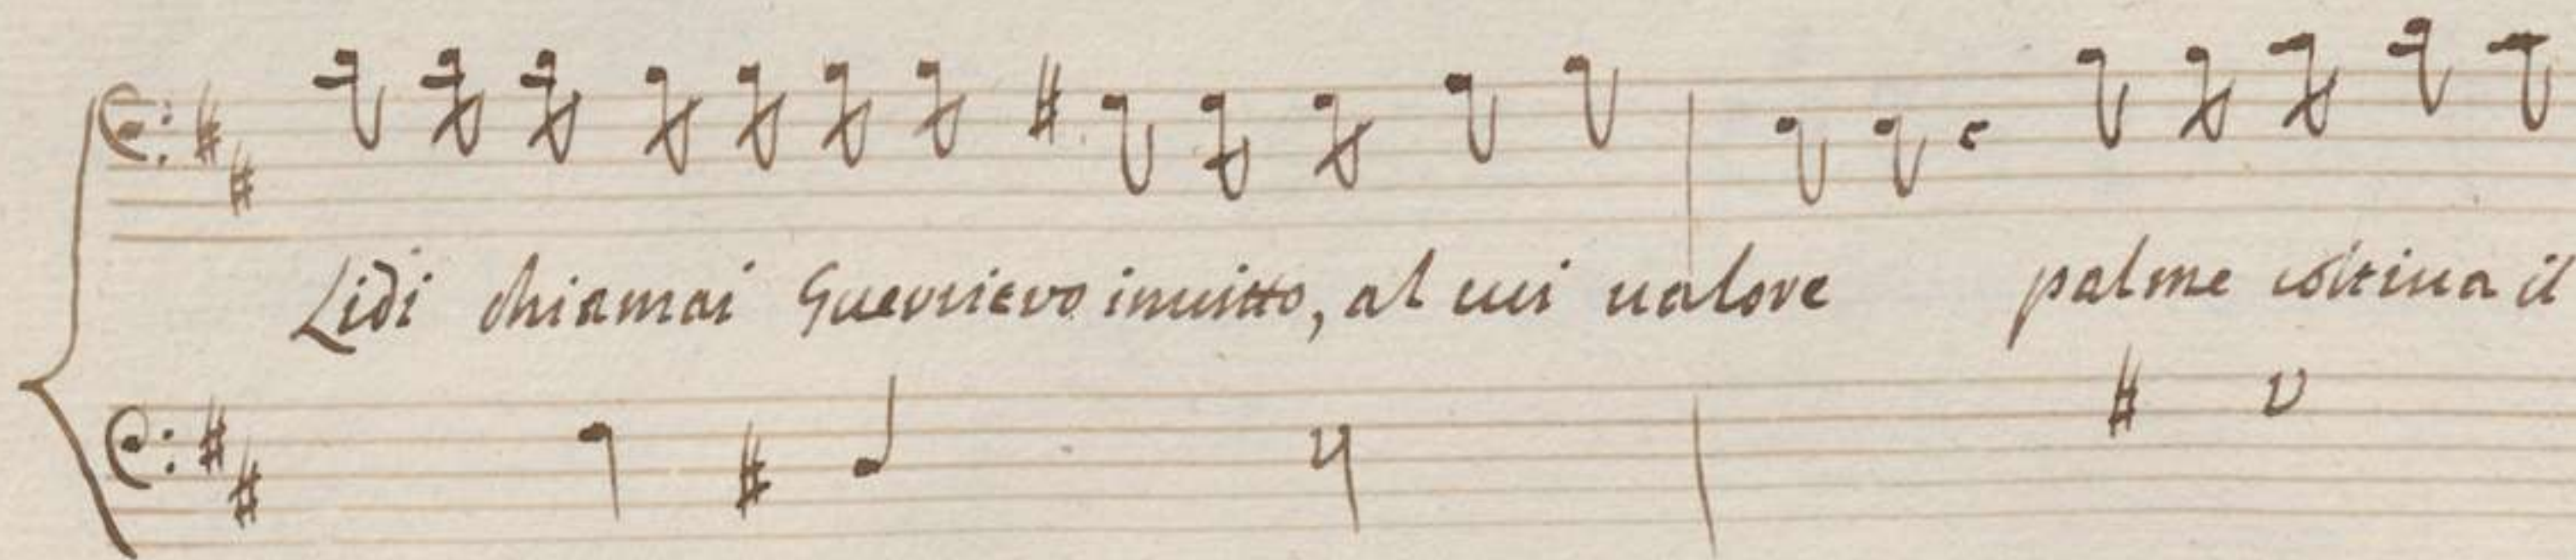 Lidi chiamai Guerriero inuitto, al cui ualore palme coltiua il